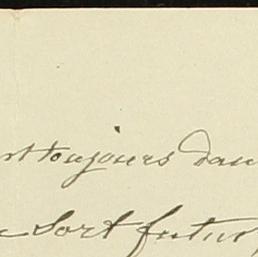 toujours dan
sort futur,